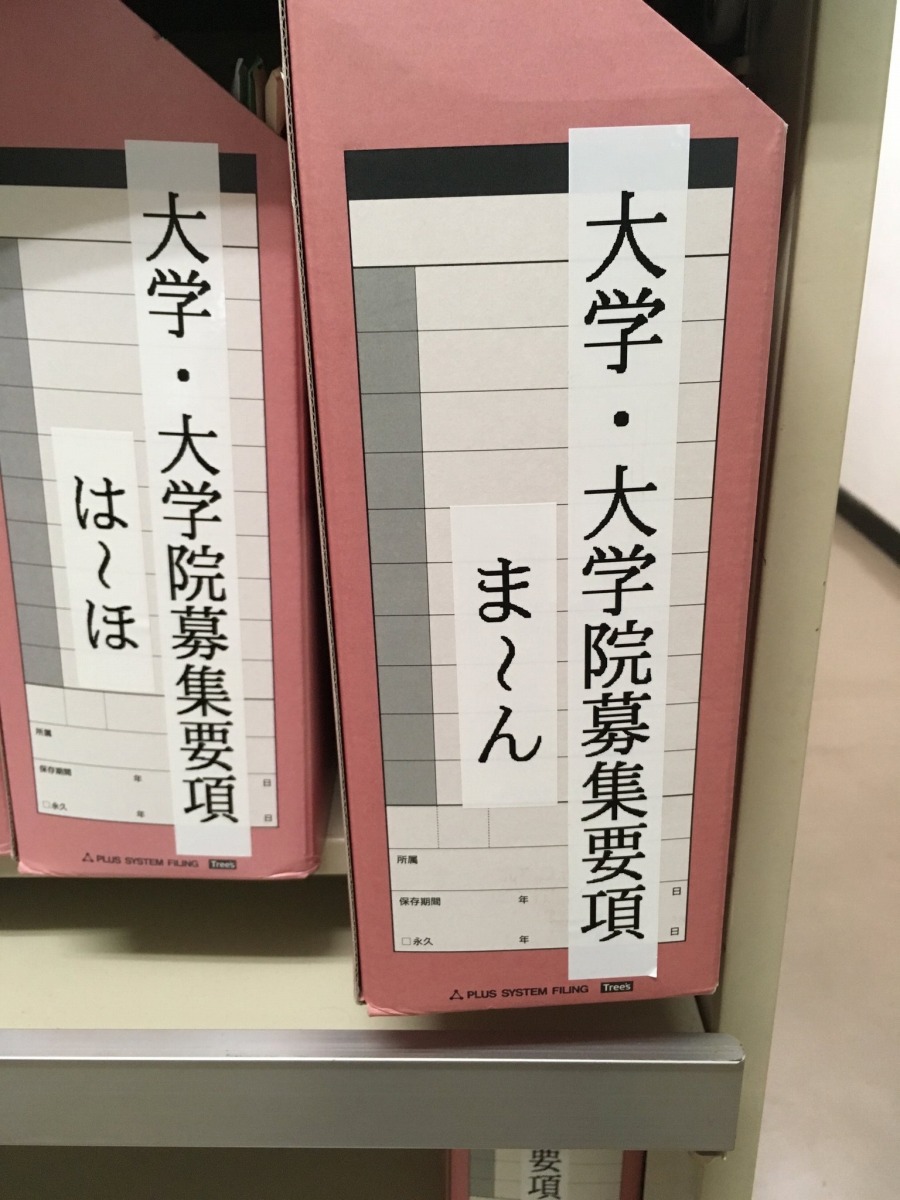 大学・大学院募集要項
ま〜ん
所属
保存期間 年 日
□永久 年 日
PLUS SYSTEM FILING Tree's
大学・大学院募集要項
は〜ほ
所属
保存期間 年 日
□永久 年 日
PLUS SYSTEM FILING Tree's
要項